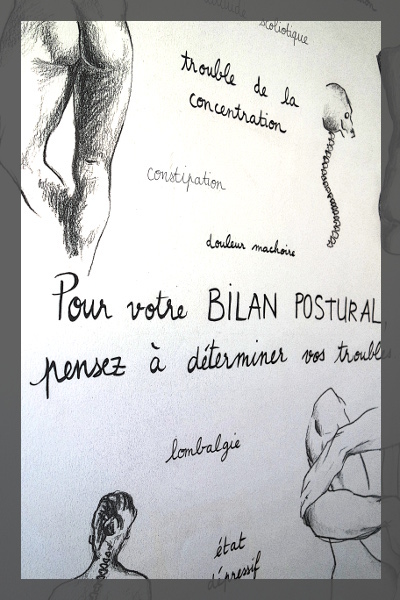 scoliotique
trouble de la
concentration
constipation
douleur machoire
Pour votre BILAN POSTURAL
pensez à déterminer vos troubles
lombalgie
état
dépressif